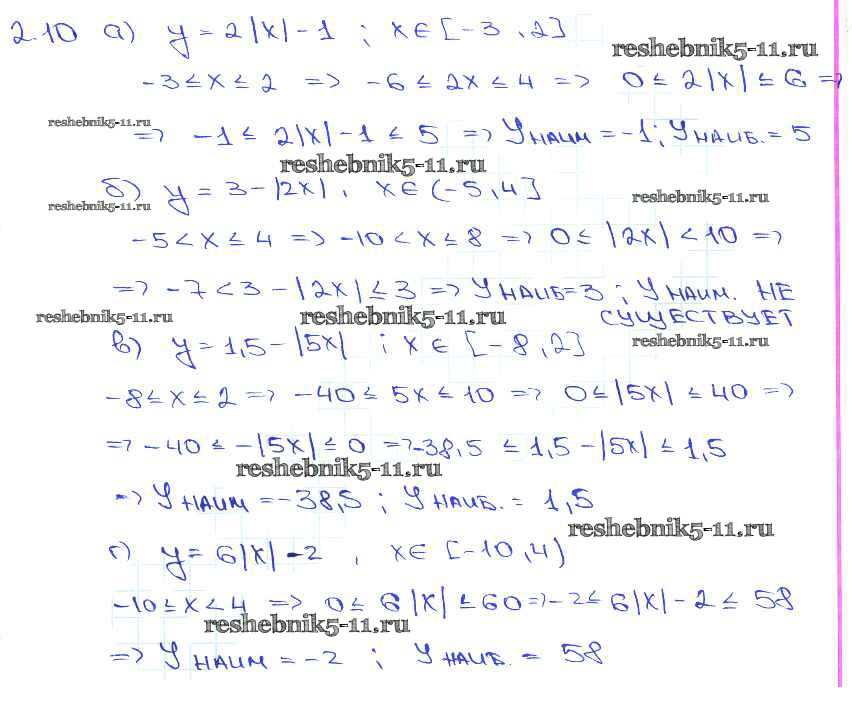 2.10 а) y = 2|x| - 1 ; x ∈ [-3, 2]
reshebnik5-11.ru
-3 ≤ x ≤ 2 => -6 ≤ 2x ≤ 4 => 0 ≤ 2|x| ≤ 6 =>
reshebnik5-11.ru
=> -1 ≤ 2|x| - 1 ≤ 5 => У наим = -1; У наиб. = 5
reshebnik5-11.ru
б) y = 3 - |2x|, x ∈ (-5, 4]
reshebnik5-11.ru reshebnik5-11.ru
-5 < x ≤ 4 => -10 < x ≤ 8 => 0 ≤ |2x| < 10 =>
=> -7 < 3 - |2x| ≤ 3 => У наиб = 3 ; У наим. НЕ
reshebnik5-11.ru reshebnik5-11.ru СУЩЕСТВУЕТ
в) y = 1,5 - |5x| ; x ∈ [-8, 2]
reshebnik5-11.ru
-8 ≤ x ≤ 2 => -40 ≤ 5x ≤ 10 => 0 ≤ |5x| ≤ 40 =>
=> -40 ≤ -|5x| ≤ 0 => -38,5 ≤ 1,5 - |5x| ≤ 1,5
reshebnik5-11.ru
=> У наим = -38,5 ; У наиб. = 1,5
reshebnik5-11.ru
г) y = 6|x| - 2 , x ∈ [-10, 4)
-10 ≤ x < 4 => 0 ≤ 6|x| ≤ 60 => -2 ≤ 6|x| - 2 ≤ 58
reshebnik5-11.ru
=> У наим = -2 ; У наиб. = 58